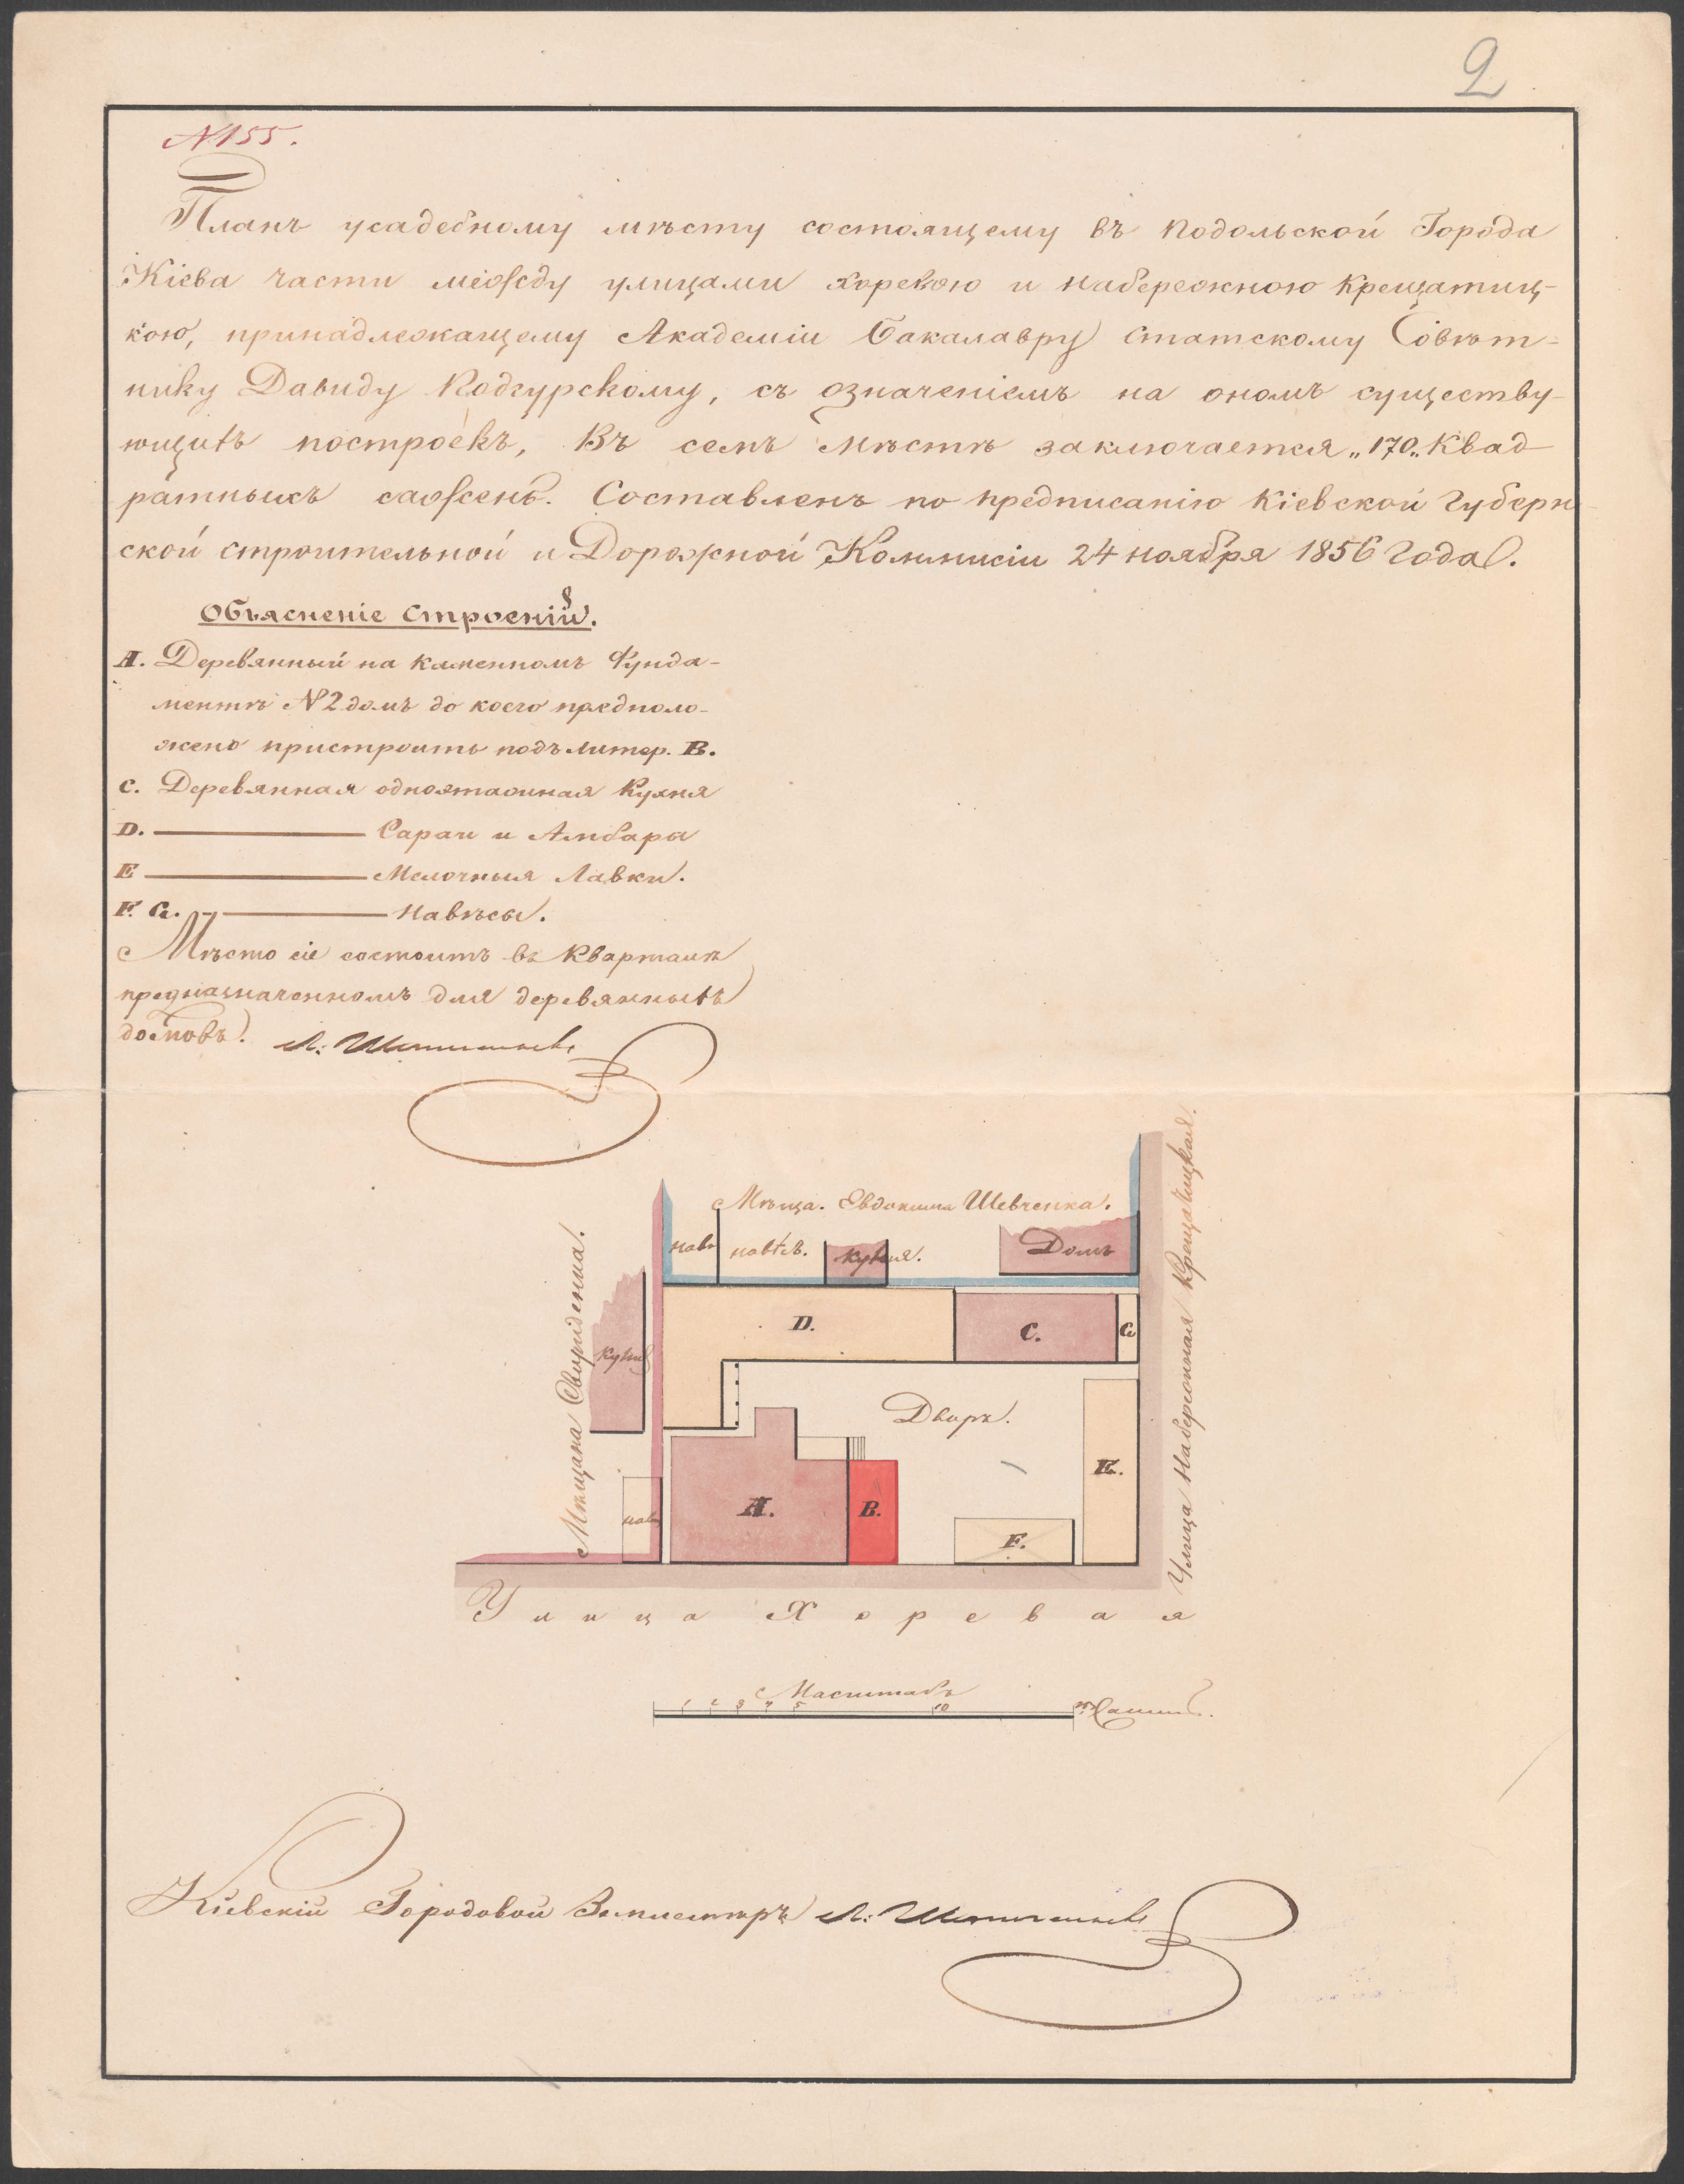 2
№155.
Планъ усадебному мѣсту состоящему въ Подольской Города
Кіева части между улицами Хоревою и Набережною Крещатиц-
кою, принадлежащему Академіи Бакалавру Статскому Совѣт-
нику Давиду Подгурскому, съ означеніемъ на ономъ существу-
ющихъ построекъ, Въ семъ Мѣстѣ заключается „170„ Квад
ратныхъ саженъ. Составленъ по предписанію Кіевской Губерн
ской строительной и Дорожной Коммисіи 24 ноября 1856 Года.
Объясненіе Строеній.
А. Деревянный на каменномъ Фунда-
ментѣ №2 домъ до коего предполо-
жено пристроить подъ литер. В.
С. Деревянная одноэтажная Кухня
D. Сараи и Амбары
E Мелочныя Лавки.
F. G. Навѣсы.
Мѣсто сіе состоитъ въ Кварталѣ
предназначенномъ для деревянныхъ
домовъ.
Мѣща. Евдокима Шевченка.
навѣ навѣсъ. кухня. Домъ
D. C. G
Кухня
Дворъ.
Мѣщана Свириденка.
E.
A. B.
навѣ
F.
Улица Набережная Крещатицкая.
Улица Хоревая
Масштабъ
1 2 3 4 5 10 15 Сажень.
Кіевскій Городовой Землемѣръ